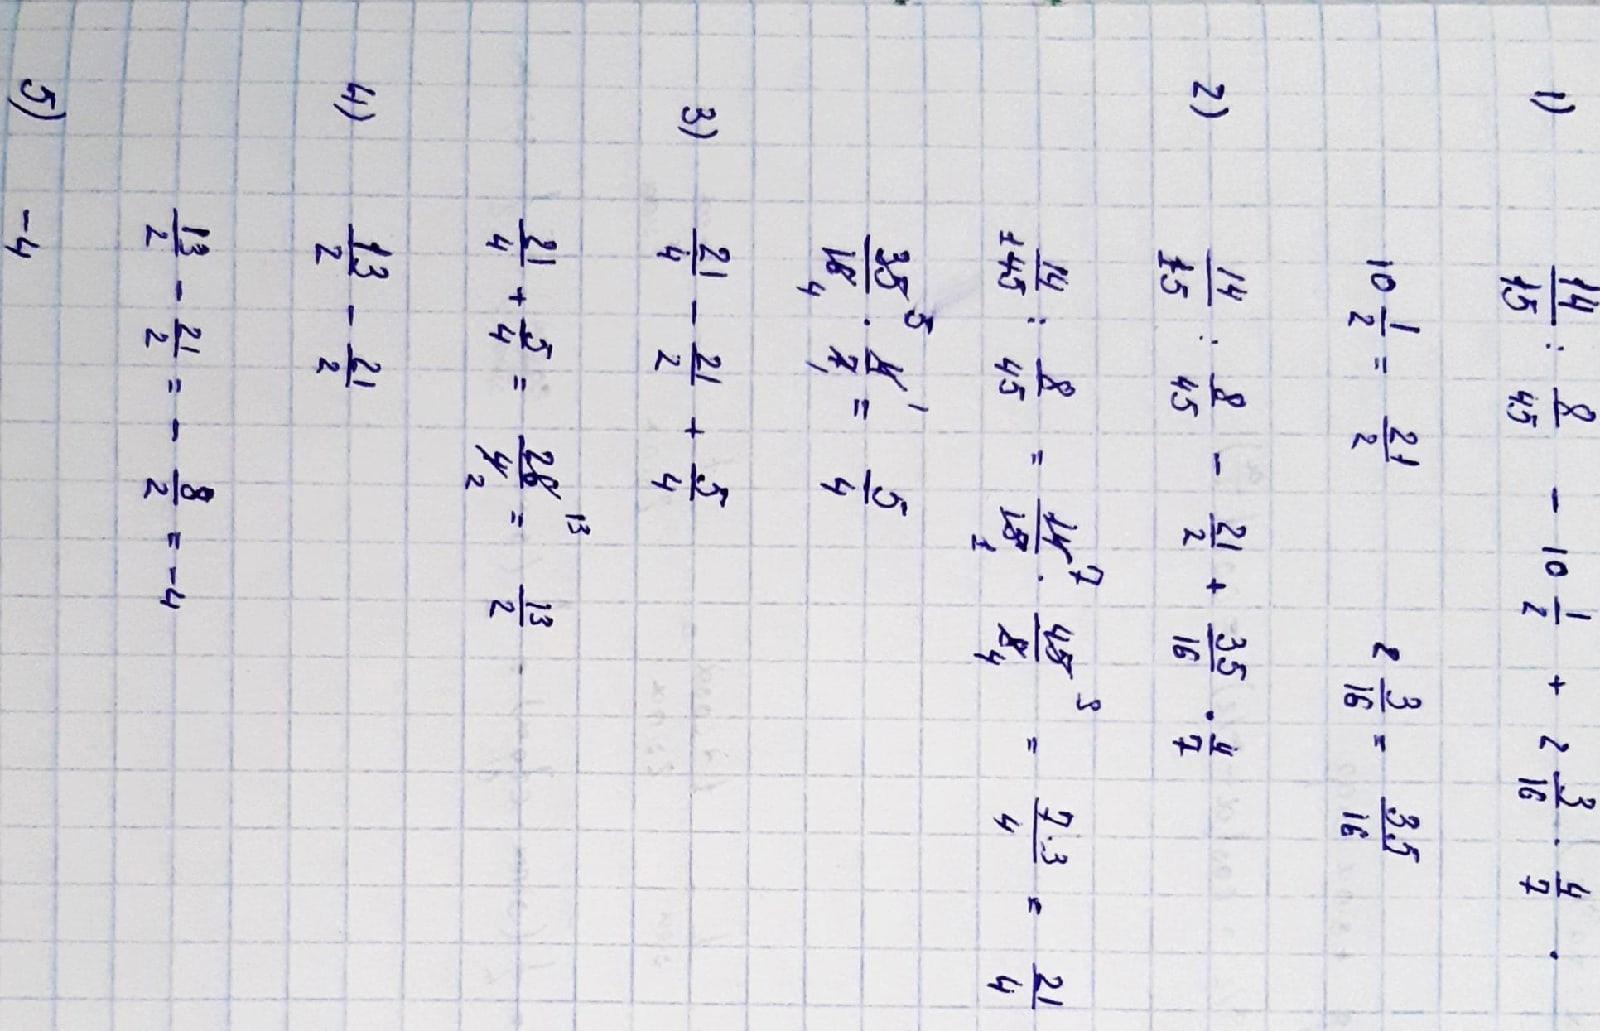 1) 14/15 : 8/45 - 10 1/2 + 2 3/16 · 4/7
10 1/2 = 21/2 2 3/16 = 35/16
2) 14/15 : 8/45 - 21/2 + 35/16 · 4/7
14/15 : 8/45 = 14/15 · 45/8 = 7·3/4 = 21/4
35/16 · 4/7 = 5/4
3) 21/4 - 21/2 + 5/4
21/4 + 5/4 = 26/4 = 13/2
4) 13/2 - 21/2
13/2 - 21/2 = - 8/2 = -4
5) -4